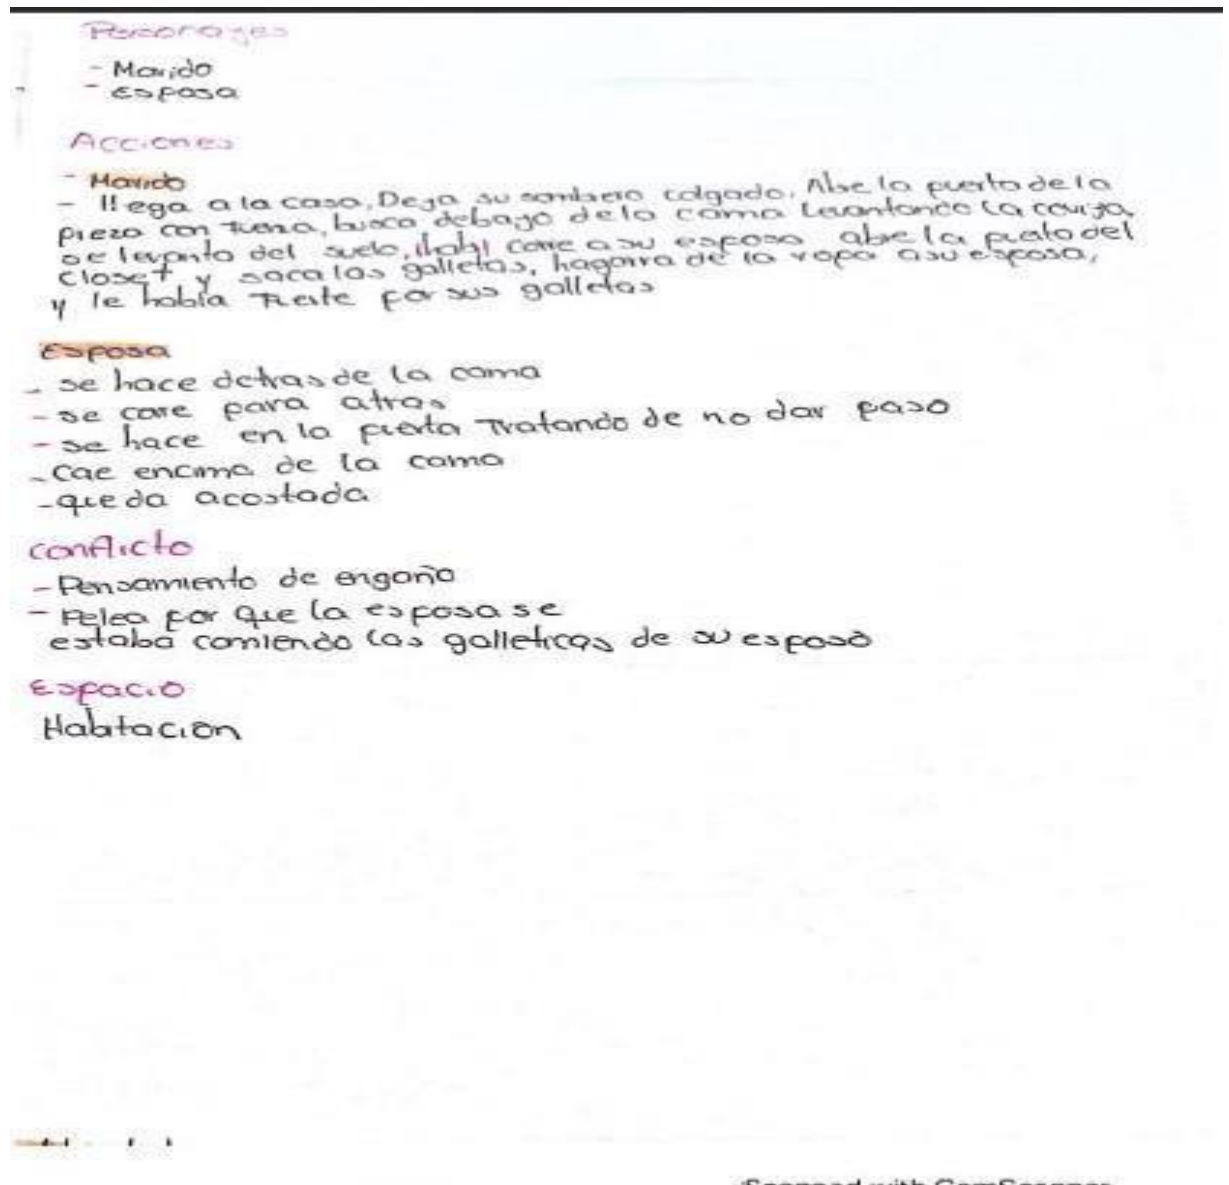 Personajes
- Marido
- Esposa
Acciones
- Marido
- llega a la casa, Deja su sombrero colgado. Abre la puerta de la
pieza con fuerza, busca debajo de la cama levantando la cobija,
se levanta del suelo, corre a su esposa abre la puerta del
closet y saca las galletas, hagarra de la ropa a su esposa,
y le habla fuerte por sus galletas
Esposa
- se hace detras de la cama
- se corre para atras
- se hace en la puerta Tratando de no dar paso
- Cae encima de la cama
- queda acostada
conflicto
- Pensamiento de engaño
- Pelea por que la esposa se
estaba comiendo las galleticas de su esposo
Espacio
Habitación
Scanned with CamScanner